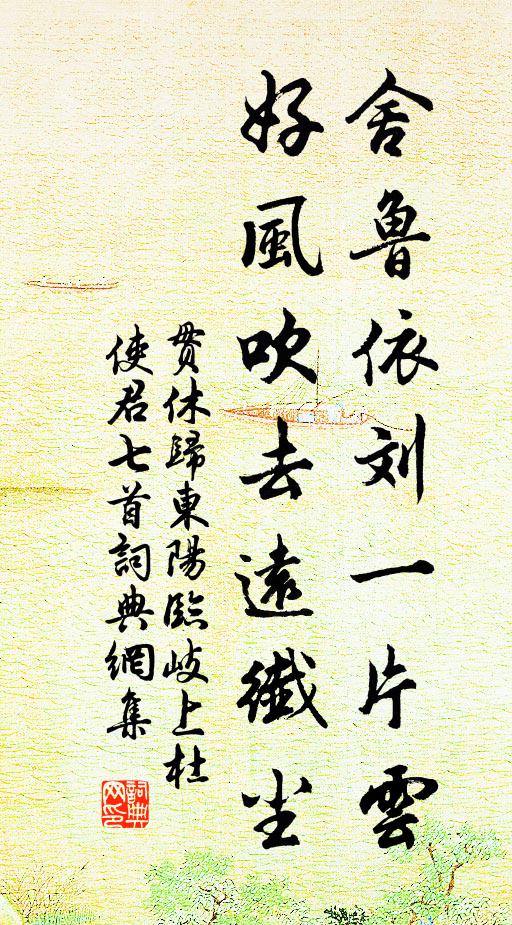 舍魯依刘一片雲
好風吹去遠纖尘
貫休歸東陽臨岐上杜
使君七首詞典網集
詞典
网印